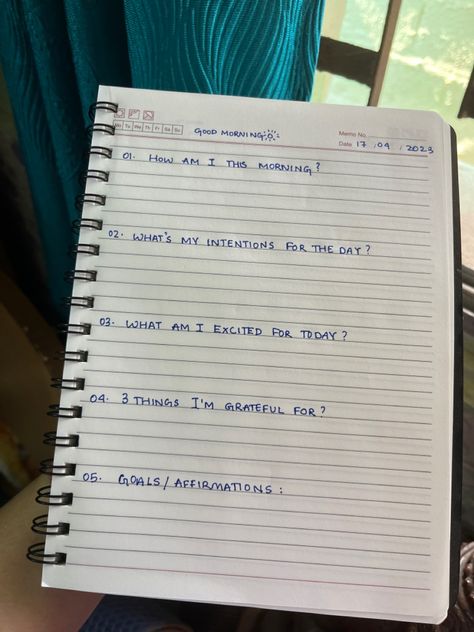 GOOD MORNING
Memo No.
Mo Tu We Th Fr Sa Su
Date 17 / 04 / 2023
01. HOW AM I THIS MORNING?
02. WHAT'S MY INTENTIONS FOR THE DAY?
03. WHAT AM I EXCITED FOR TODAY?
04. 3 THINGS I'M GRATEFUL FOR?
05. GOALS/AFFIRMATIONS: